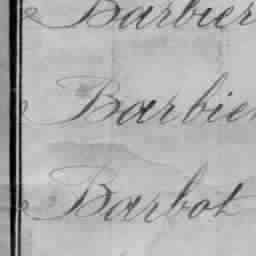 Barbier
Barbier
Barbot